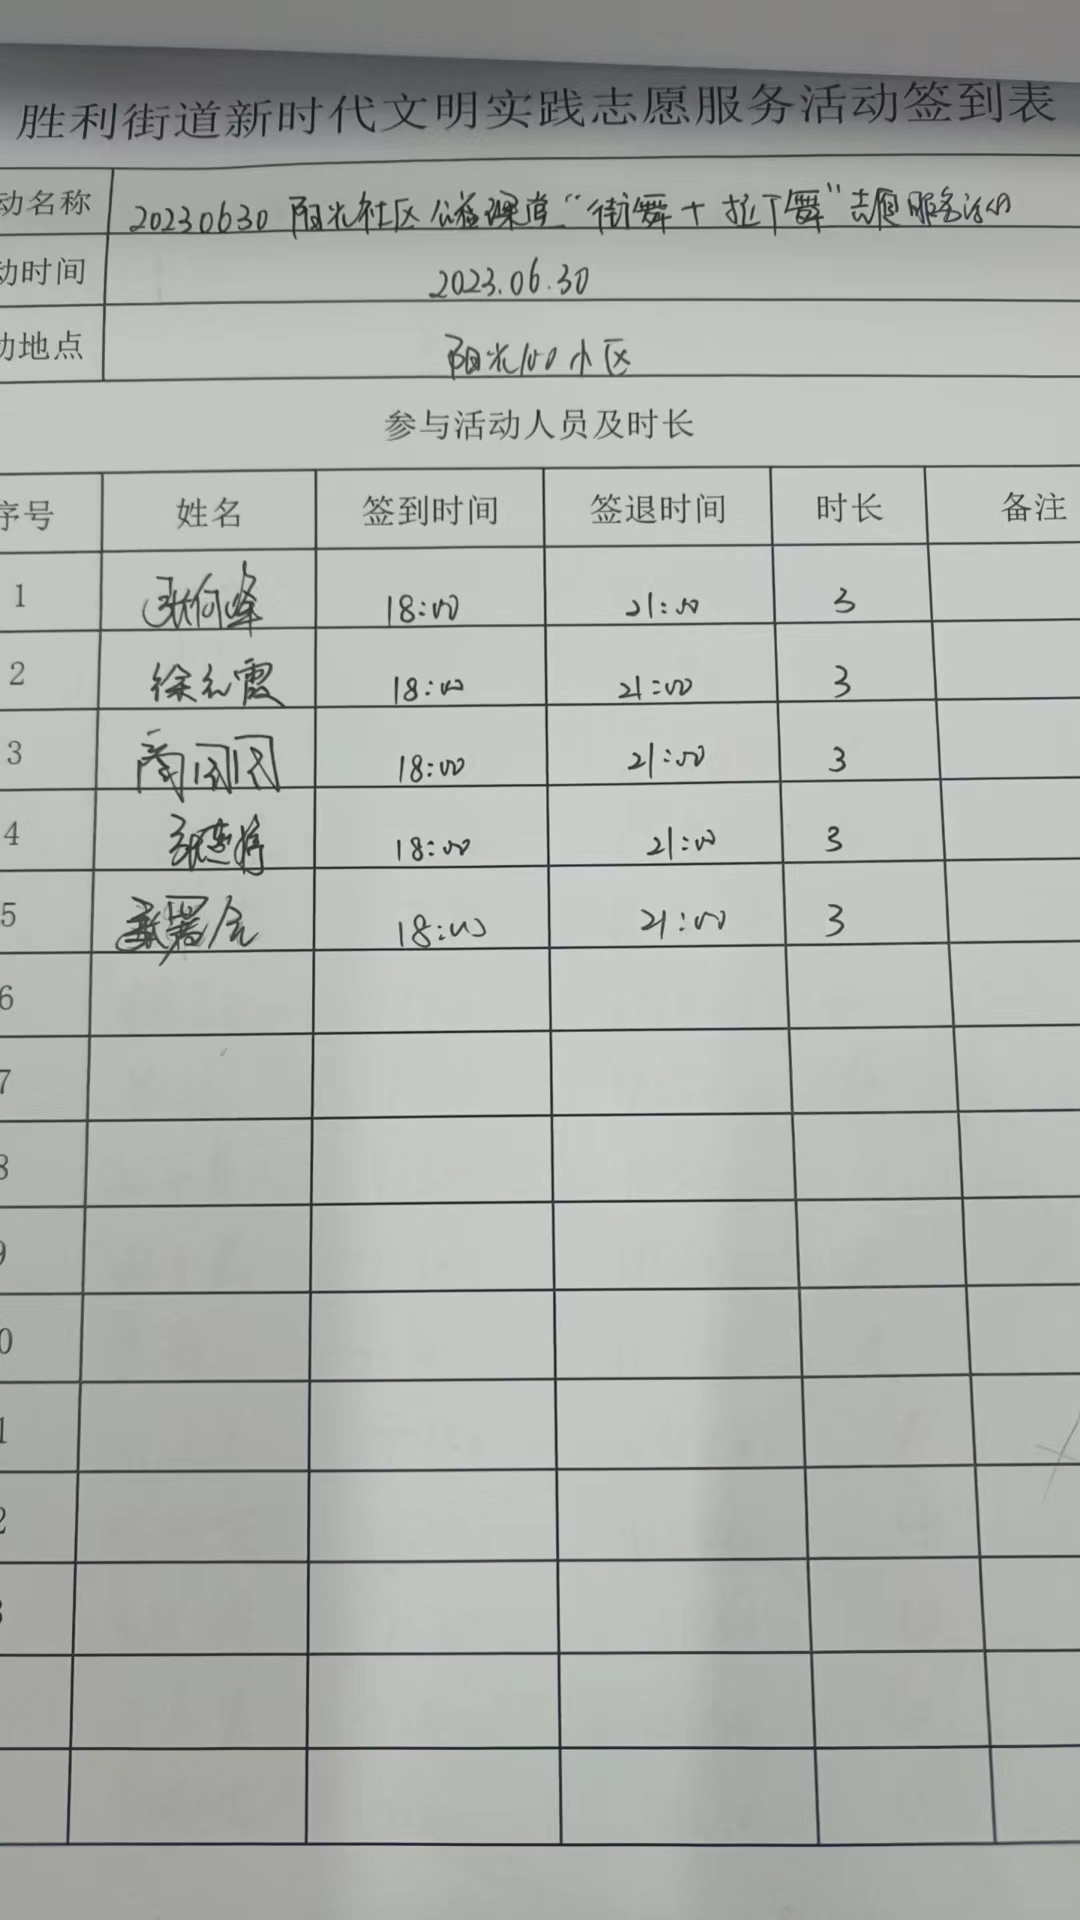 胜利街道新时代文明实践志愿服务活动签到表
动名称 20230630 阳光社区公益课堂“街舞+拉丁舞”志愿服务活动
动时间 2023.06.30
动地点 阳光100小区
参与活动人员及时长
序号 姓名 签到时间 签退时间 时长 备注
1 18:00 21:00 3
2 徐 霞 18:00 21:00 3
3 18:00 21:00 3
4 18:00 21:00 3
5 18:00 21:00 3
6
7
8
9
0
1
2
3